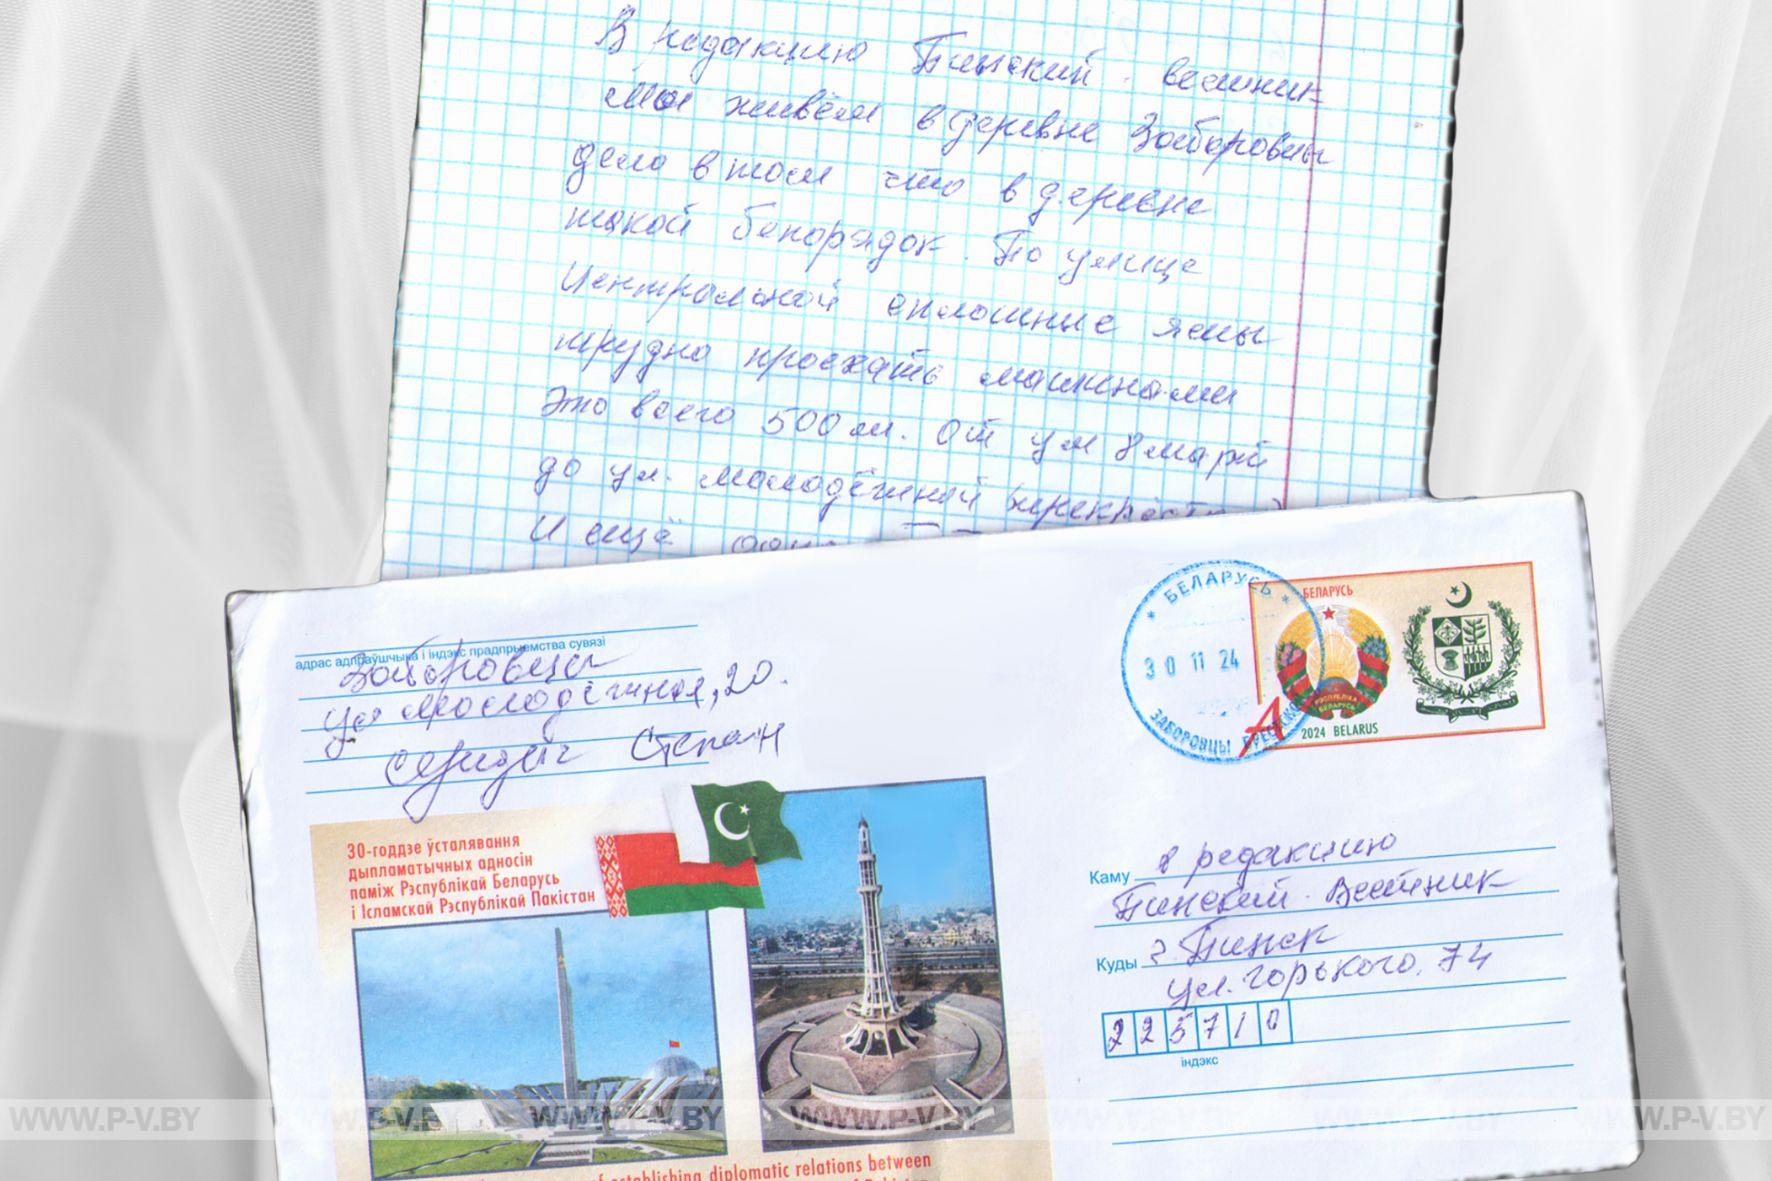 В редакцию Пинский. вестник
Мы живём в деревне Заборовцы
дело в том что в деревне
такой беспорядок. По улице
Центральной сплошные ямы
трудно проехать машинами
Это всего 500 м. От ул 8 март
до ул. молодёжной
И ещё
БЕЛАРУСЬ
30 11 24
ЗАБОРОВЦЫ БРЕСТСКОЙ
БЕЛАРУСЬ
РЭСПУБЛІКА БЕЛАРУСЬ
A
2024 BELARUS
адрас адпраўшчыка і індэкс прадпрыемства сувязі
Заборовцы
ул молодёжная, 20.
Степан
30-годдзе ўсталявання
дыпламатычных адносін
паміж Рэспублікай Беларусь
і Ісламскай Рэспублікай Пакістан
Каму в редакцию
Пинский. Вестник
Куды г. Пинск
ул. Горького. 74
225710
індэкс
of establishing diplomatic relations between
WWW.P-V.BY WWW.P-V.BY WWW.P-V.BY WWW.P-V.BY WWW.P-V.BY WWW.P-V.BY WWW.P-V.BY